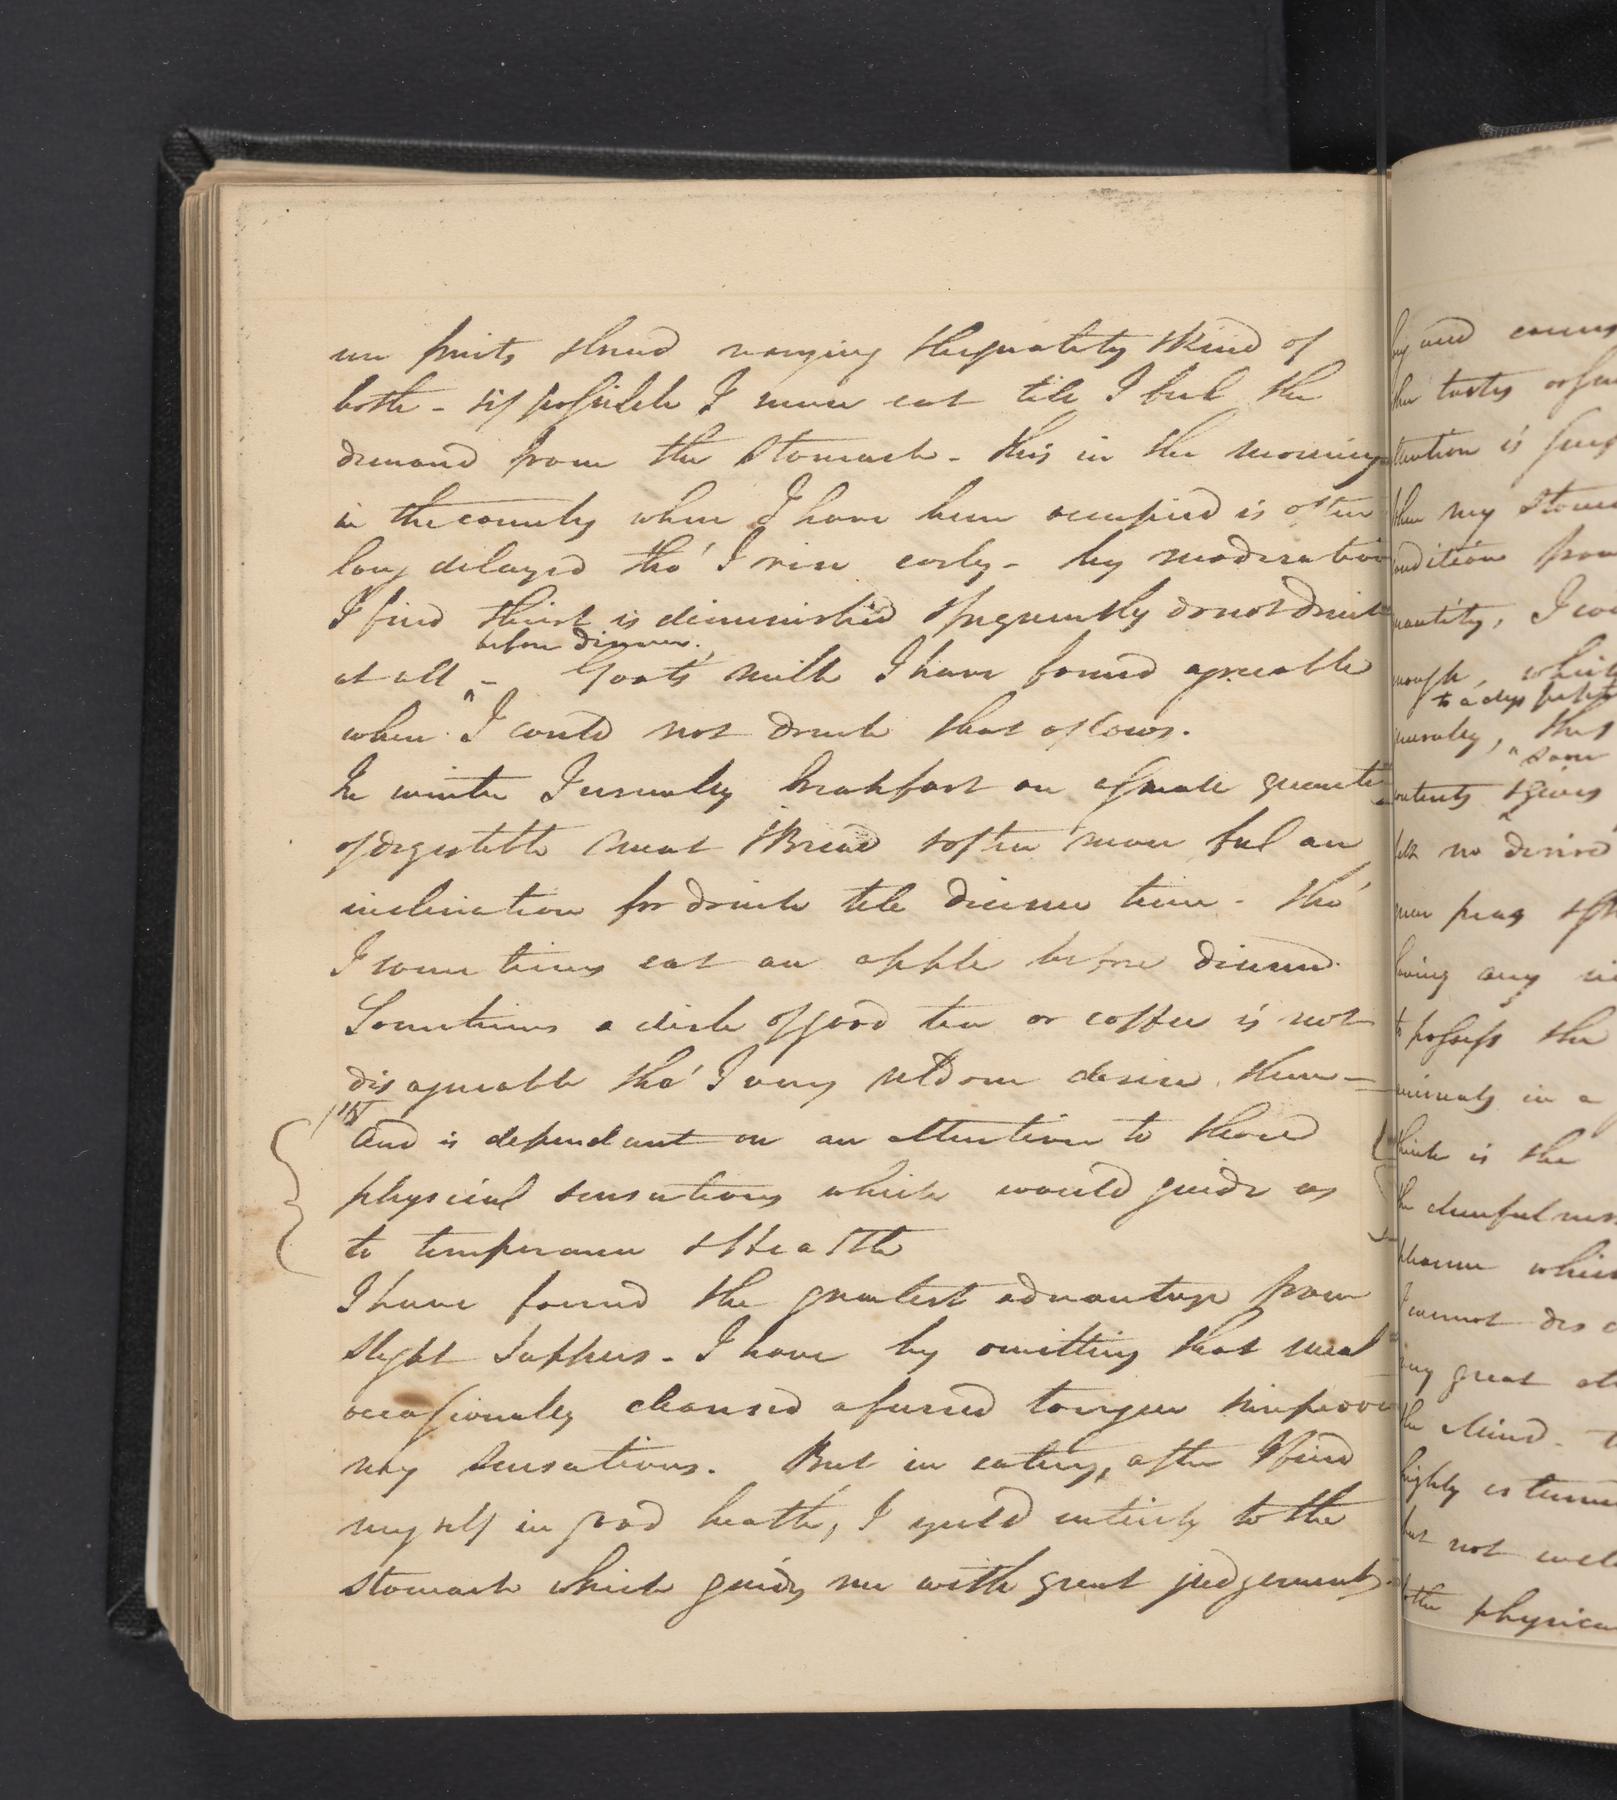 on fruits & bread varying the quality & kind of
both - & if possible I never eat till I feel the
demand from the stomach - this in the morning
in the country when I have been occupied is often
long delayed tho' I rise early - by moderation
I find thirst is diminished & frequently do not drink
before dinner.
at all - Goats milk I have found agreeable
when I could not drink that of Cows.
In winter I usually breakfast on a small quantity
of digestible meat & Bread & often never feel an
inclination for drink till dinner time - tho'
I some times eat an apple before dinner.
Sometimes a dish of good tea or coffee is not
disagreeable tho' I very seldom desire them -
And is dependant on an attention to those
physical sensations which would guide us
to temperance & Health
I have found the greatest advantage from
slight Suppers - I have by omitting that meal
occasionally cleansed a furred tongue & improved
my sensations. But in eating, after I find
myself in good health, I yield entirely to the
stomach which guides me with great judgement.
by and
the tastes
attention is
when my stomach
condition from
quantity, I
enough, which
to a dyspeptic
generally, that
some
contents & gives
felt no desire
having any
to possess the
animals in a
think is the
the cheerfulness
pleasure which
I cannot
my great
the Mind -
highly
but not
to the physical